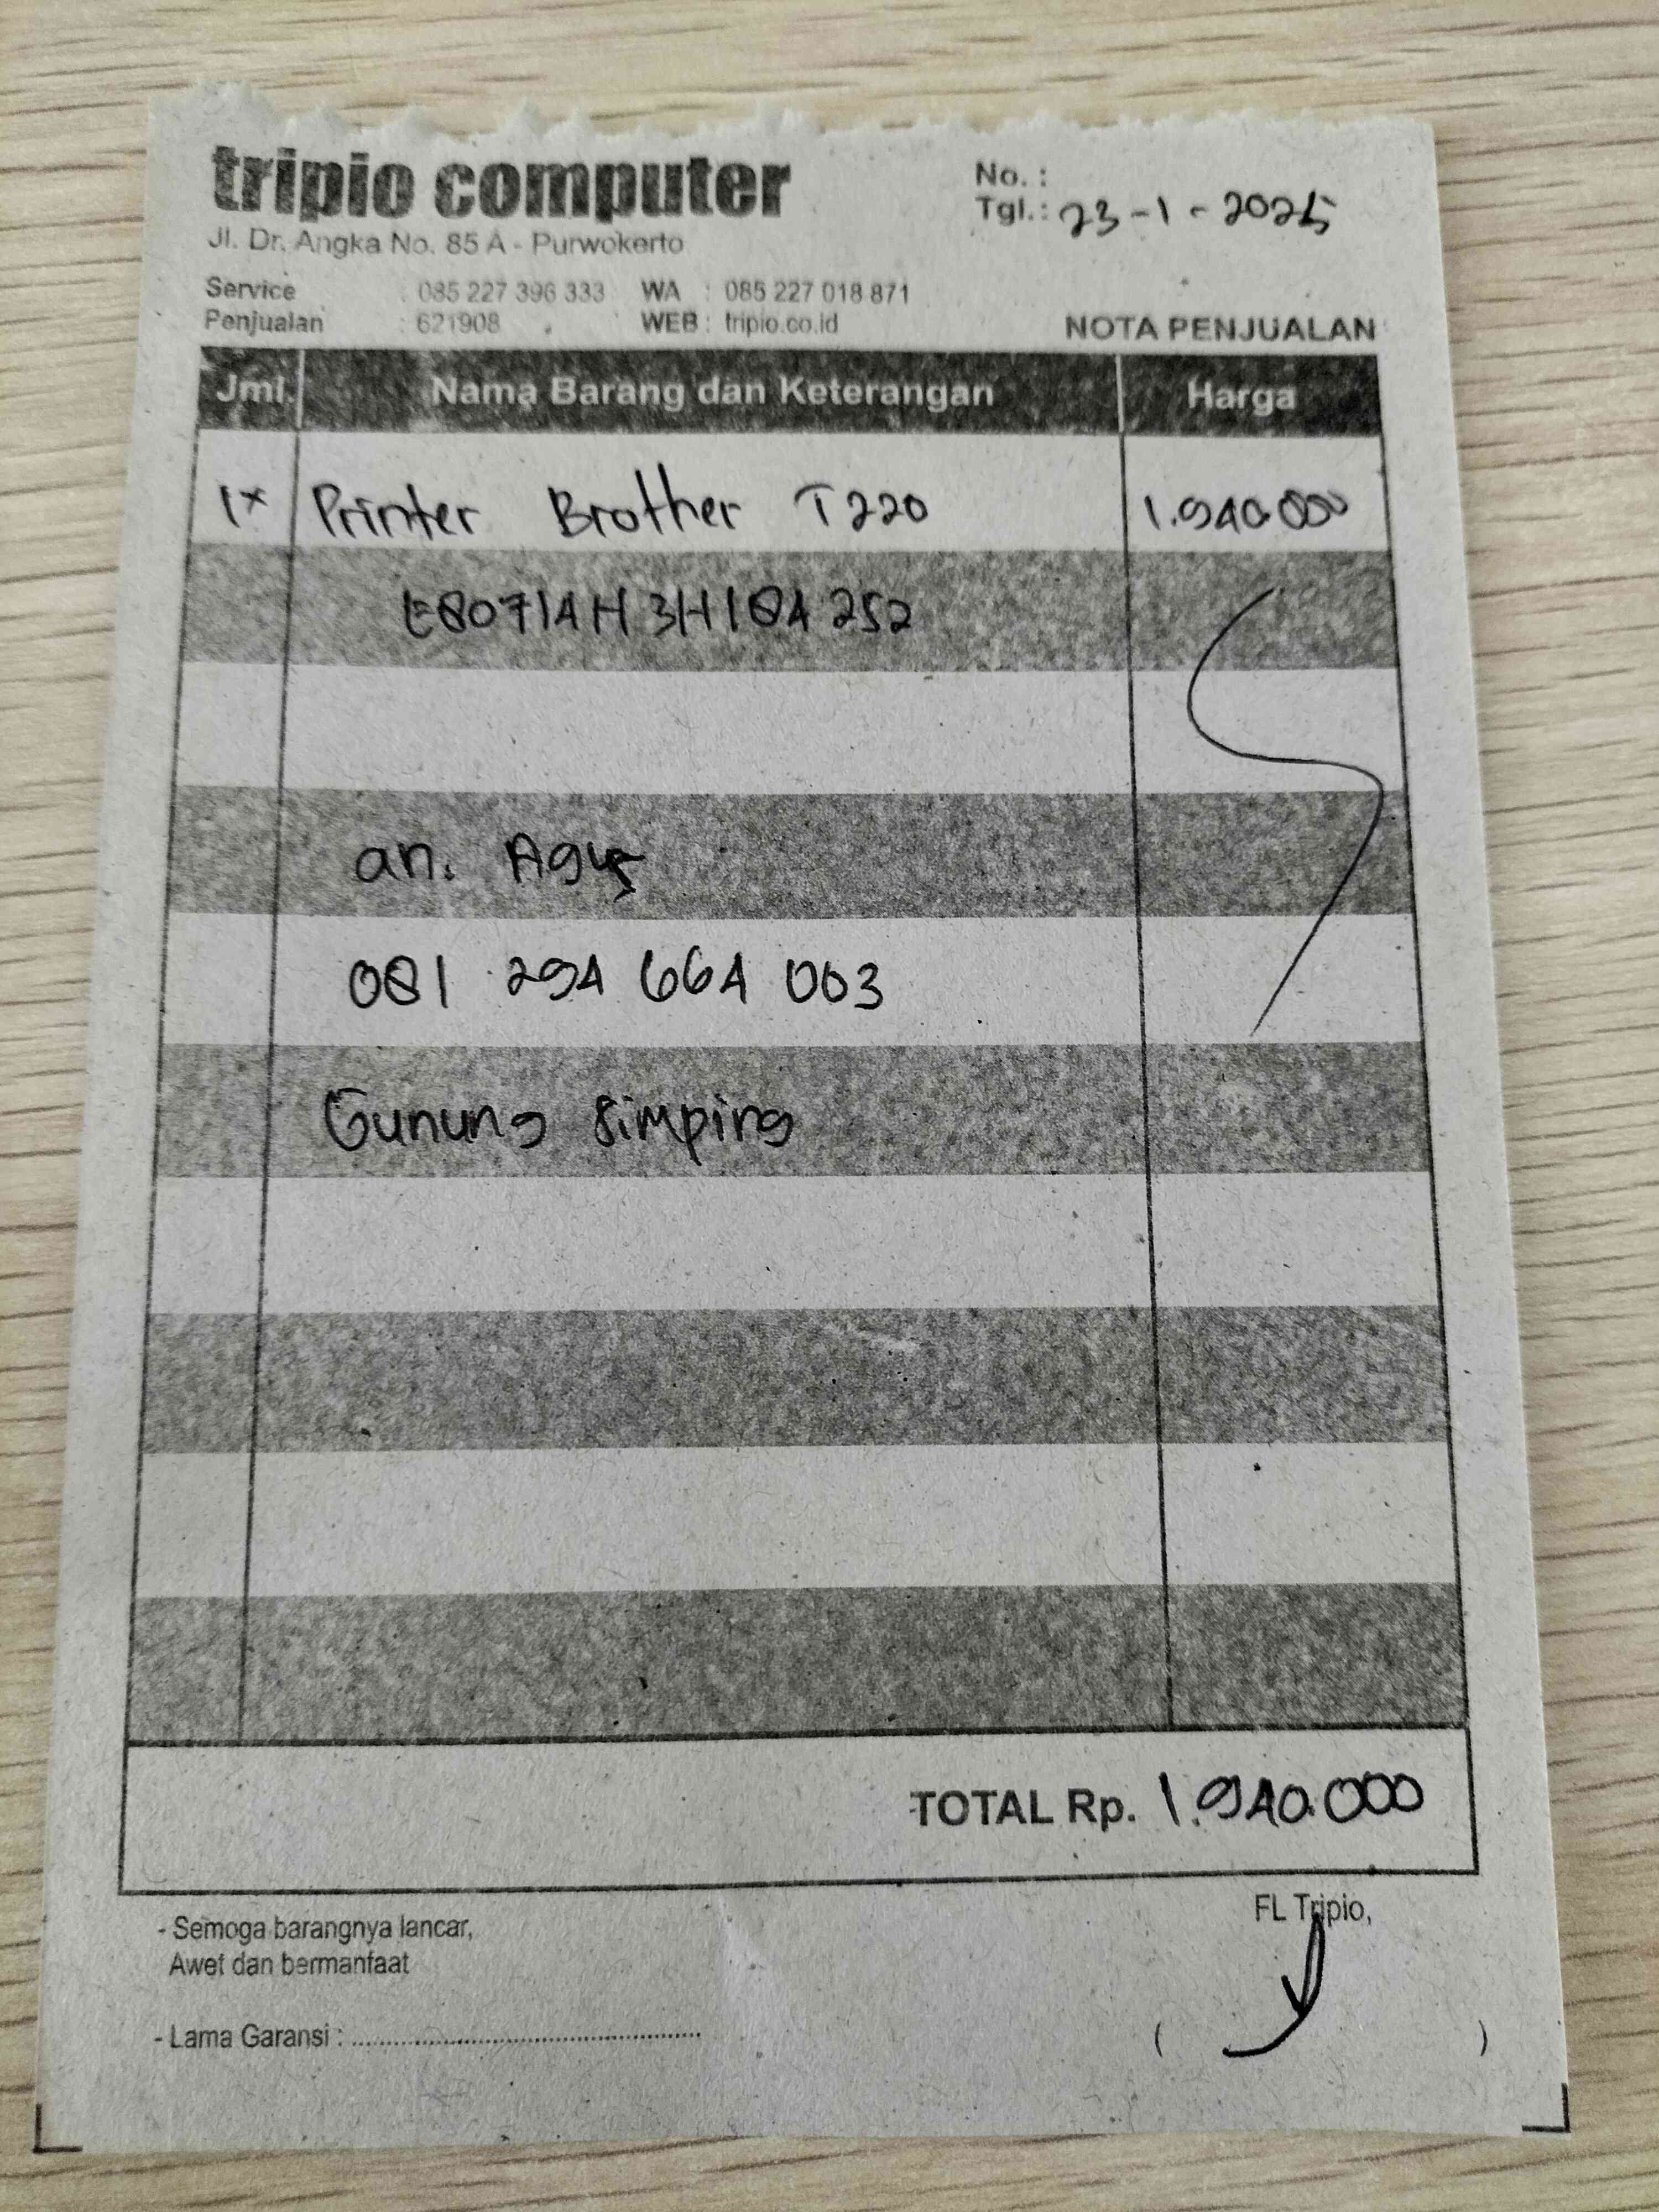 tripio computer
No. :
Tgl. : 23 - 1 - 2025
Jl. Dr. Angka No. 85 A - Purwokerto
Service : 085 227 396 333 WA : 085 227 018 871
Penjualan : 621908 WEB : tripio.co.id
NOTA PENJUALAN
Jml. Nama Barang dan Keterangan Harga
1x Printer Brother T220 1.940.000
E80714H3H184252
an. Agus
081 294 664 003
Gunung Simping
TOTAL Rp. 1.940.000
- Semoga barangnya lancar,
Awet dan bermanfaat
FL Tripio,
- Lama Garansi : ......................................................
( )